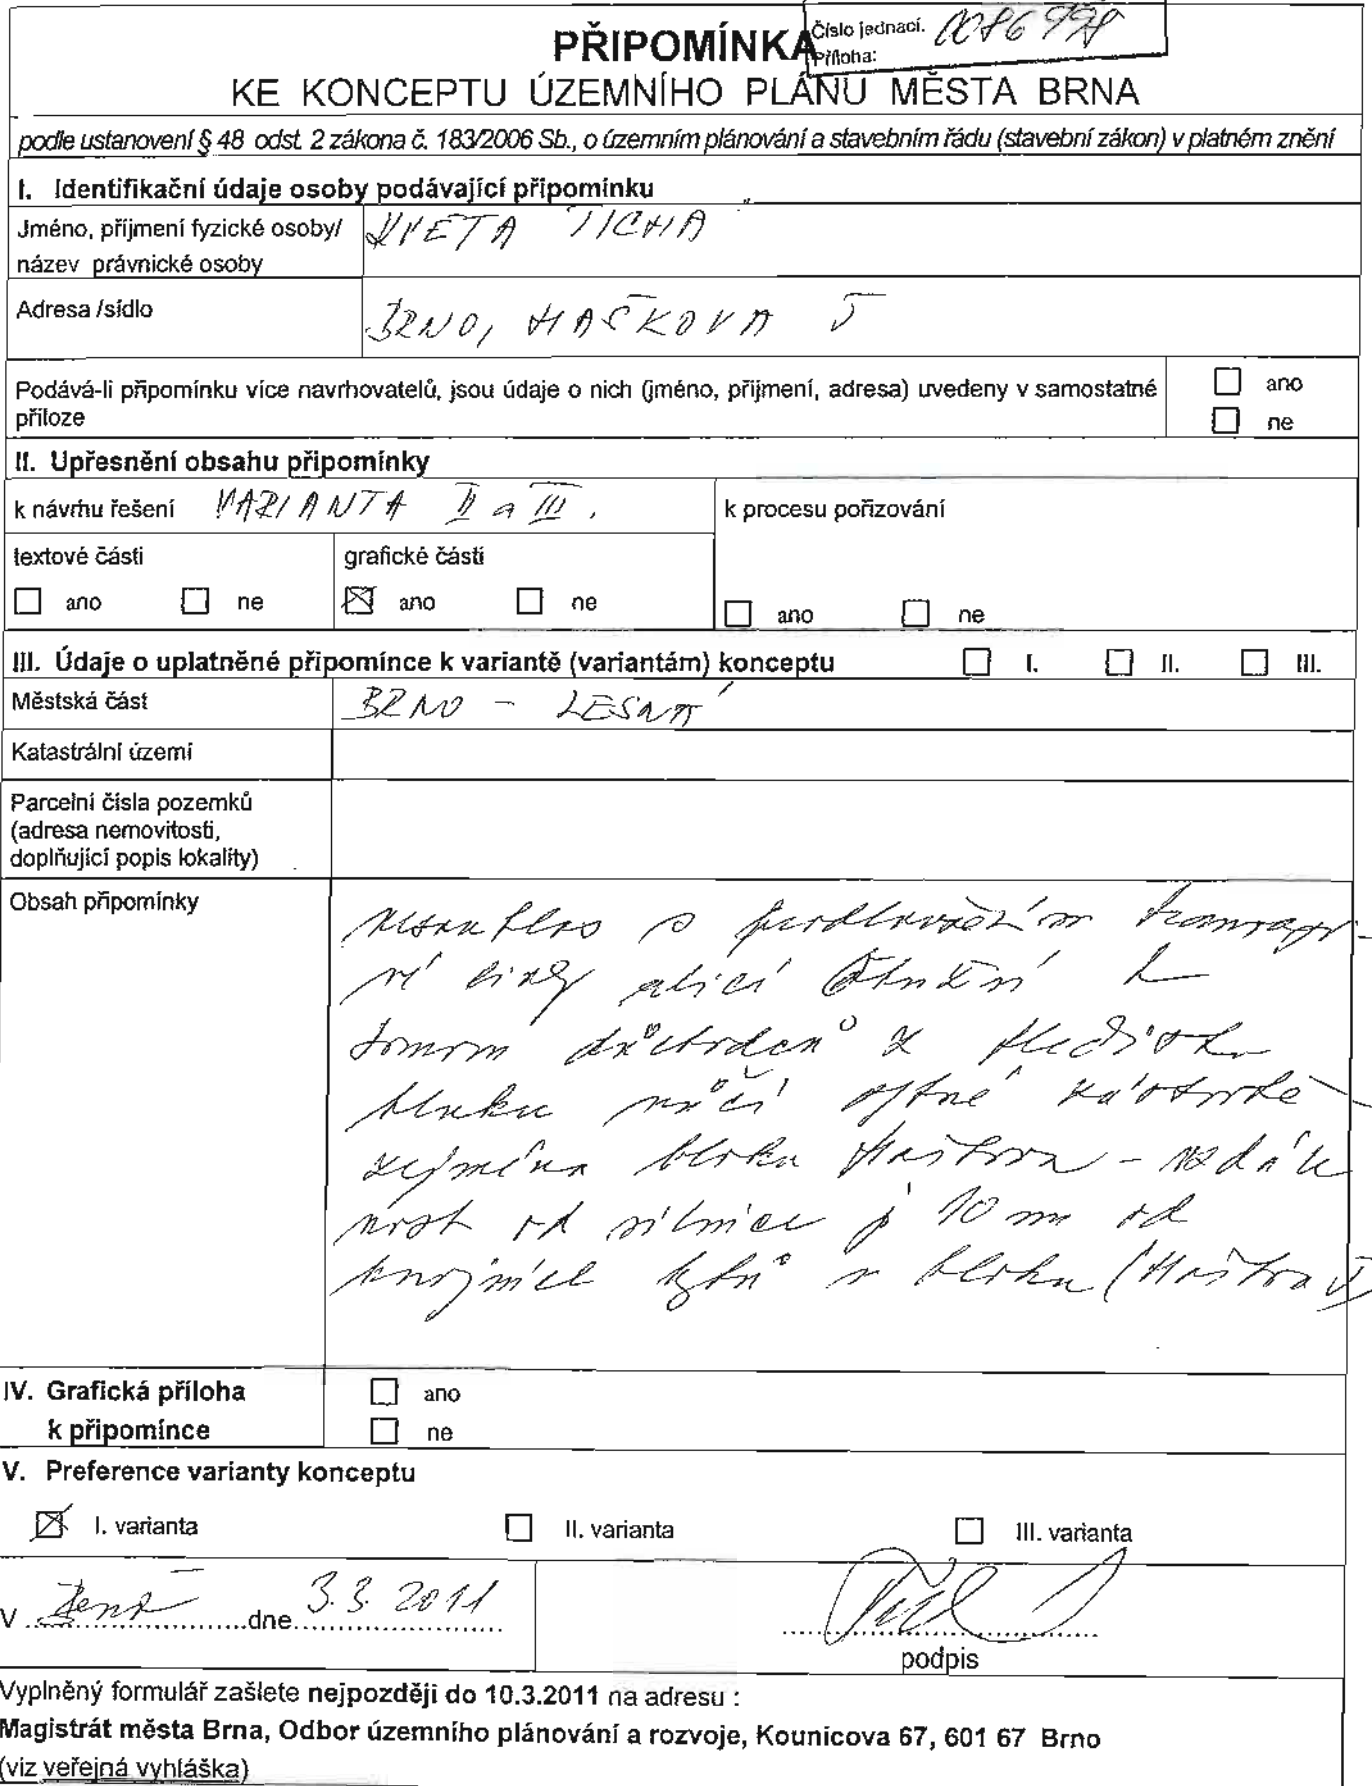 PŘIPOMÍNKA
Číslo jednací.
Příloha:
KE KONCEPTU ÚZEMNÍHO PLÁNU MĚSTA BRNA
podle ustanovení § 48 odst. 2 zákona č. 183/2006 Sb., o územním plánování a stavebním řádu (stavební zákon) v platném znění
I. Identifikační údaje osoby podávající připomínku
Jméno, příjmení fyzické osoby/ KVETA TICHA
název právnické osoby
Adresa /sídlo BRNO, HAŠKOVA 5
Podává-li připomínku více navrhovatelů, jsou údaje o nich (jméno, příjmení, adresa) uvedeny v samostatné
příloze
ano
ne
II. Upřesnění obsahu připomínky
k návrhu řešení VARIANTA II a III.
k procesu pořizování
textové části
grafické části
ano ne ano ne ano ne
III. Údaje o uplatněné připomínce k variantě (variantám) konceptu I. II. III.
Městská část BRNO - LESNÁ
Katastrální území
Parcelní čísla pozemků
(adresa nemovitosti,
doplňující popis lokality)
Obsah připomínky
nesouhlas s prodloužením tramvajo-
vé linky ulicí Okružní k
domom důchodců z hlediska
hluku vůči bytné zástavbě -
zejména bloku Haškova - vzdále
nost od silnice je 10 m od
bytů v bloku (Haškova 5)
IV. Grafická příloha
k připomínce
ano
ne
V. Preference varianty konceptu
I. varianta II. varianta III. varianta
V ..... dne 3.3. 2011
podpis
Vyplněný formulář zašlete nejpozději do 10.3.2011 na adresu :
Magistrát města Brna, Odbor územního plánování a rozvoje, Kounicova 67, 601 67 Brno
(viz veřejná vyhláška)